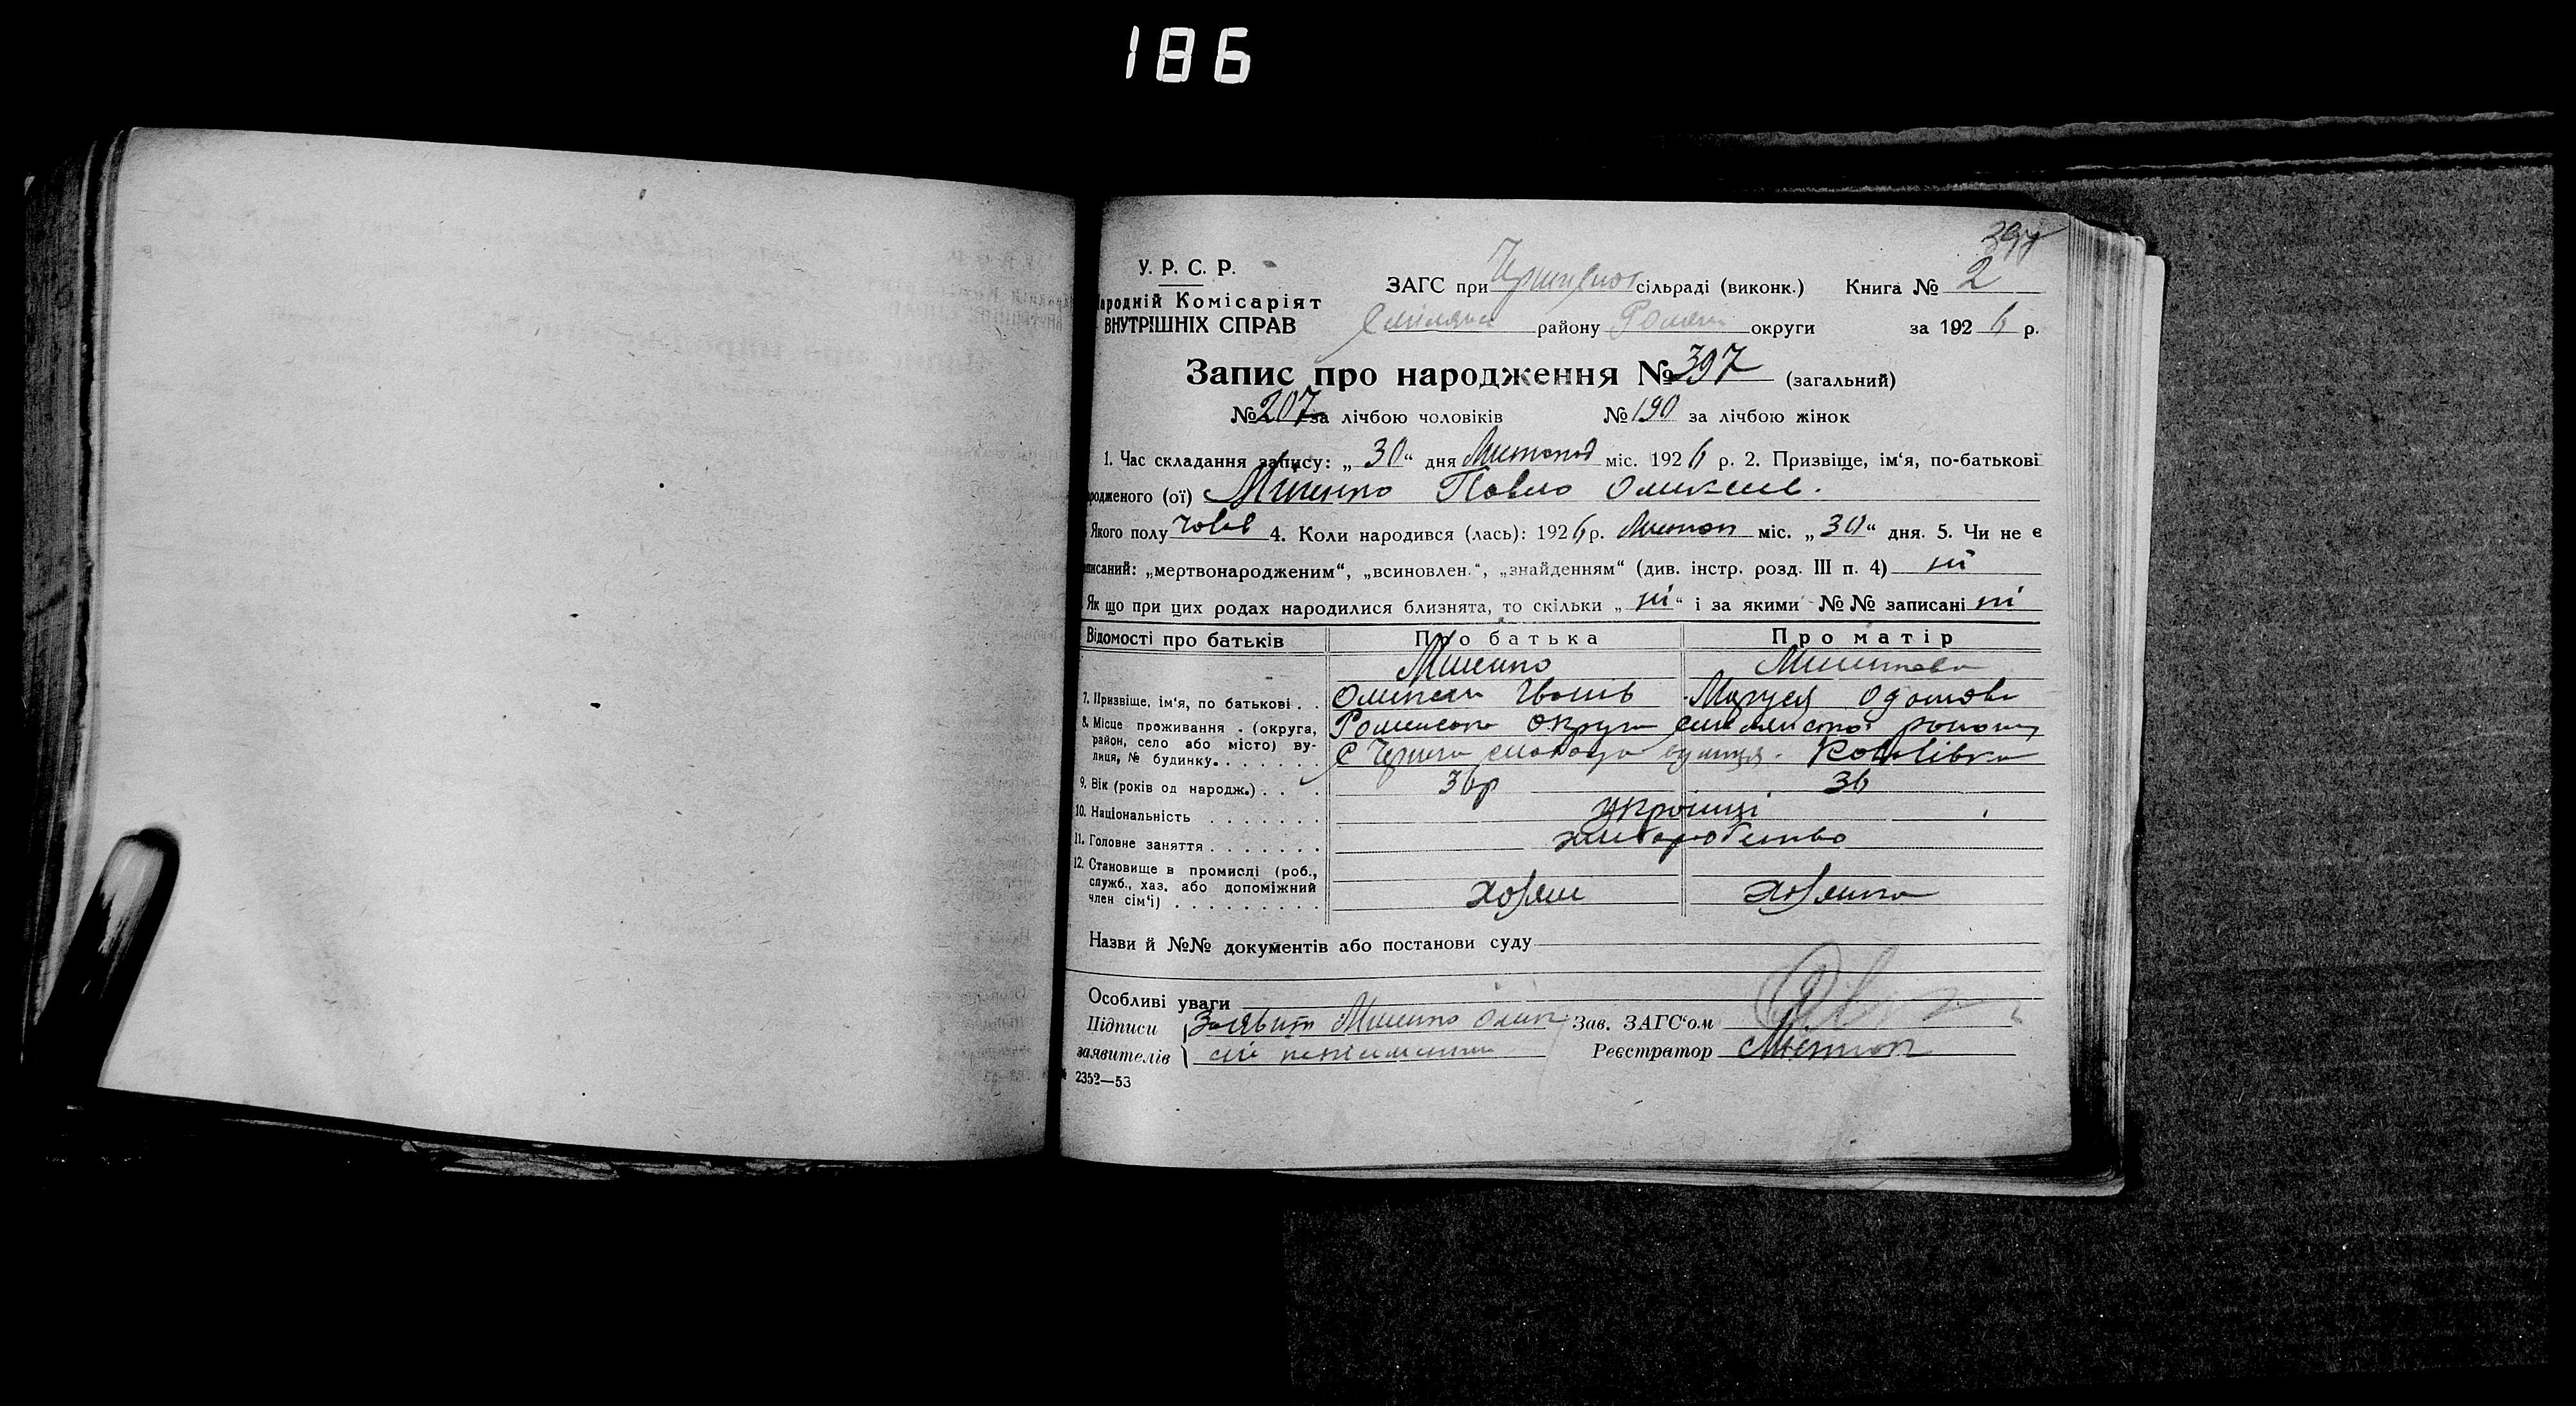 186
397
У. Р. С. Р.
ародній Комісаріят
ВНУТРІШНІХ СПРАВ
ЗАГС при сільраді (виконк.) Книга № 2
району Ромен округи за 1926 р.
Запис про народження № 397 (загальний)
№ 207 за лічбою чоловіків № 190 за лічбою жінок
1. Час складання запису: „ 30 “ дня Листопад міс. 1926 р. 2. Призвіще, ім‘я, по-батькові
родженого (ої) Павло Олексієв.
Якого полу чолов 4. Коли народився (лась): 1926 р. Листоп міс. „ 30 “ дня. 5. Чи не є
писаний: „мертвонародженим“, „всиновлен.“, „знайденням“ (див. інстр. розд. III п. 4) ні
Як що при цих родах народилися близнята, то скільки „ ні “ і за якими №№ записані ні
Відомості про батьків Про батька Про матір
7. Призвіще, ім‘я, по батькові . . Олексій Іванів Маруся Одамова
8. Місце проживання . (округа, Роменська округа району
район, село або місто) ву-
лиця, № будинку. . . . . . . С слобода вулиця Ковалівка
9. Вік (років од народж.) . . . 36 р 36
10. Національність . . . . . . . українці
11. Головне заняття . . . . . . . хліборобство
12. Становище в промислі (роб.,
служб., хаз. або допоміжний
член сім‘ї) . . . . . . . . . хозяїн хозяйка
Назви й №№ документів або постанови суду
Особливі уваги
Підписи Зав. ЗАГС‘ом
заявителів Реєстратор
2352—53